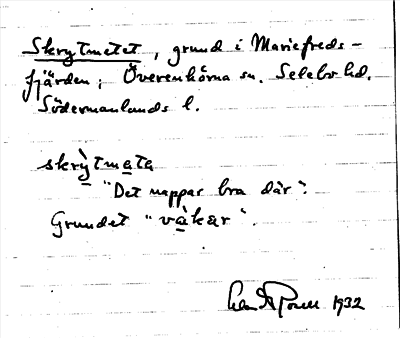 Skrytmetet, grund i Mariefreds-
fjärden; Överenhörna sn. Selebo hd.
Södermanlands l.
skrỳtmata
"Det nappar bra där".
Grundet "vàkar".
1932